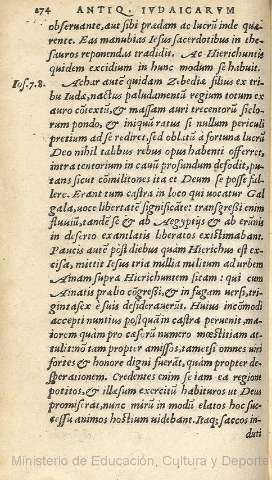 274 ANTIQ. IVDAICARVM
obseruante, aut sibi prædam ac lucrũ inde quæ
rente. Eas manubias Iesus sacerdotibus in the-
sauros reponendas tradidit. Ac Hierichuntis
quidem excidium in hunc modum se habuit.
Ios.7.8. Achar autẽ quidam Zebediæ filius ex tri
bu Iudæ, nactus paludamentũ regium totum ex
auro cõtextũ, & massam auri trecentorũ siclo-
rum pondo, & iniquũ ratus si nullum periculi
pretium ad se rediret, sed oblatũ à fortuna lucrũ
Deo nihil talibus rebus opus habenti offerret,
intra tentorium in cauũ profundum defodit, pu-
tans sicut cõmilitones ita et Deum se posse fal-
lere. Erant tum castra in loco qui vocatur Gal
gala, uoce libertatẽ significãte: transgressi enim
fluuiũ, tandẽ se & ab Aegyptijs & ab ærũnis
in deserto exantlatis liberatos existimabant.
Paucis autẽ pòst diebus quàm Hierichus est ex-
cisa, mittit Iesus tria millia militum ad urbem
Ainam supra Hierichuntem sitam: qui cum
Ainatis prælio cõgreßi, & in fugam uersi, tri-
gintasex è suis desiderauerũt. Huius incõmodi
accepti nuntius postquã in castra peruenit, ma-
iorem quàm pro cæsorũ numero mœstitiam at-
tulit: nõ tam propter amissos, tametsi omnes uiri
fortes & honore digni fuerãt, quàm propter de-
sperationem. Credentes enim se iam ea regione
potitos, & illæsum exercitũ habituros ut Deus
promiserat, nunc mirũ in modũ elatos hoc suc-
cessu animos hostium uidebant. Itaq; saccos in-
duti
Ministerio de Educación, Cultura y Deporte